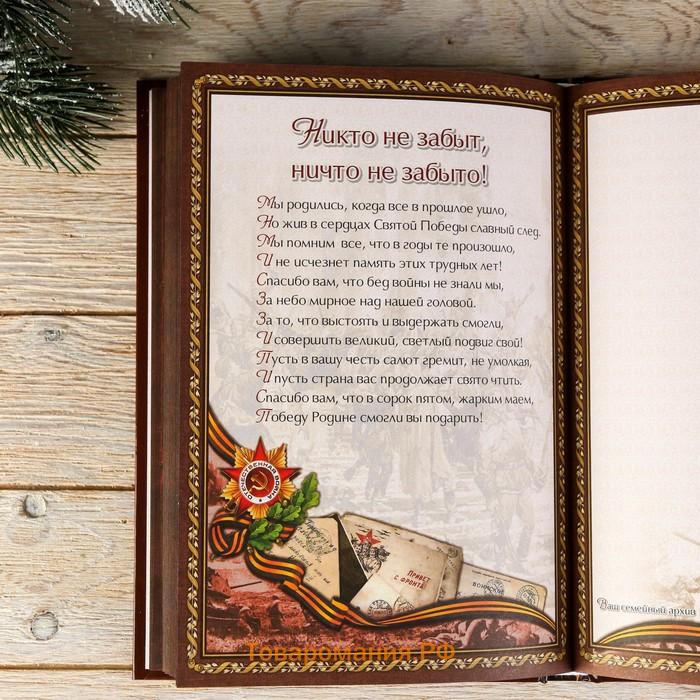 Никто не забыт,
ничто не забыто!
Мы родились, когда все в прошлое ушло,
Но жив в сердцах Святой Победы славный след.
Мы помним все, что в годы те произошло,
И не исчезнет память этих трудных лет!
Спасибо вам, что бед войны не знали мы,
За небо мирное над нашей головой.
За то, что выстоять и выдержать смогли,
И совершить великий, светлый подвиг свой!
Пусть в вашу честь салют гремит, не умолкая,
И пусть страна вас продолжает свято чтить.
Спасибо вам, что в сорок пятом, жарким маем,
Победу Родине смогли вы подарить!
ОТЕЧЕСТВЕННАЯ ВОЙНА
ПРИВЕТ
С ФРОНТА!
Ваш семейный архив
Товаромания.РФ